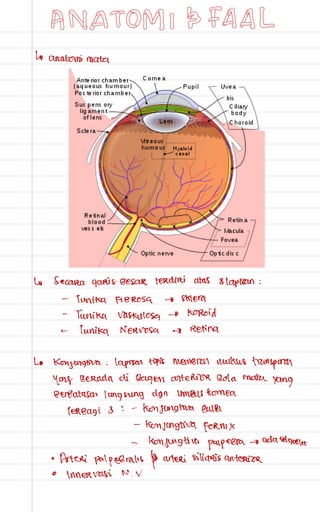 ANATOMI & FAAL
↳ anatomi mata
Anterior chamber
(aqueous humour)
Posterior chamber
Cornea
Pupil
Uvea
Iris
Ciliary
body
Choroid
Suspensory
ligament
of lens
Lens
Sclera
Vitreous
humour
Hyaloid
canal
Retinal
blood
vessels
Retina
Macula
Fovea
Optic nerve
Optic disc
↳ Secara garis besar terdiri atas 3 lapisan :
- Tunika Fibrosa → sklera
- Tunika vaskulosa → koroid
- Tunika Nervosa → Retina
↳ Konjungtiva : lapisan tipis membran mukus transparan
yang Berada di Bagian anterior Bola mata yang
Berbatasan langsung dgn limbus kornea
terBagi 3 : - konjungtiva Bulbi
- Konjungtiva Fornix
- konjungtiva palpebra → ada
• Arteri palpebralis & arteri siliaris anterior
• Innervasi N V